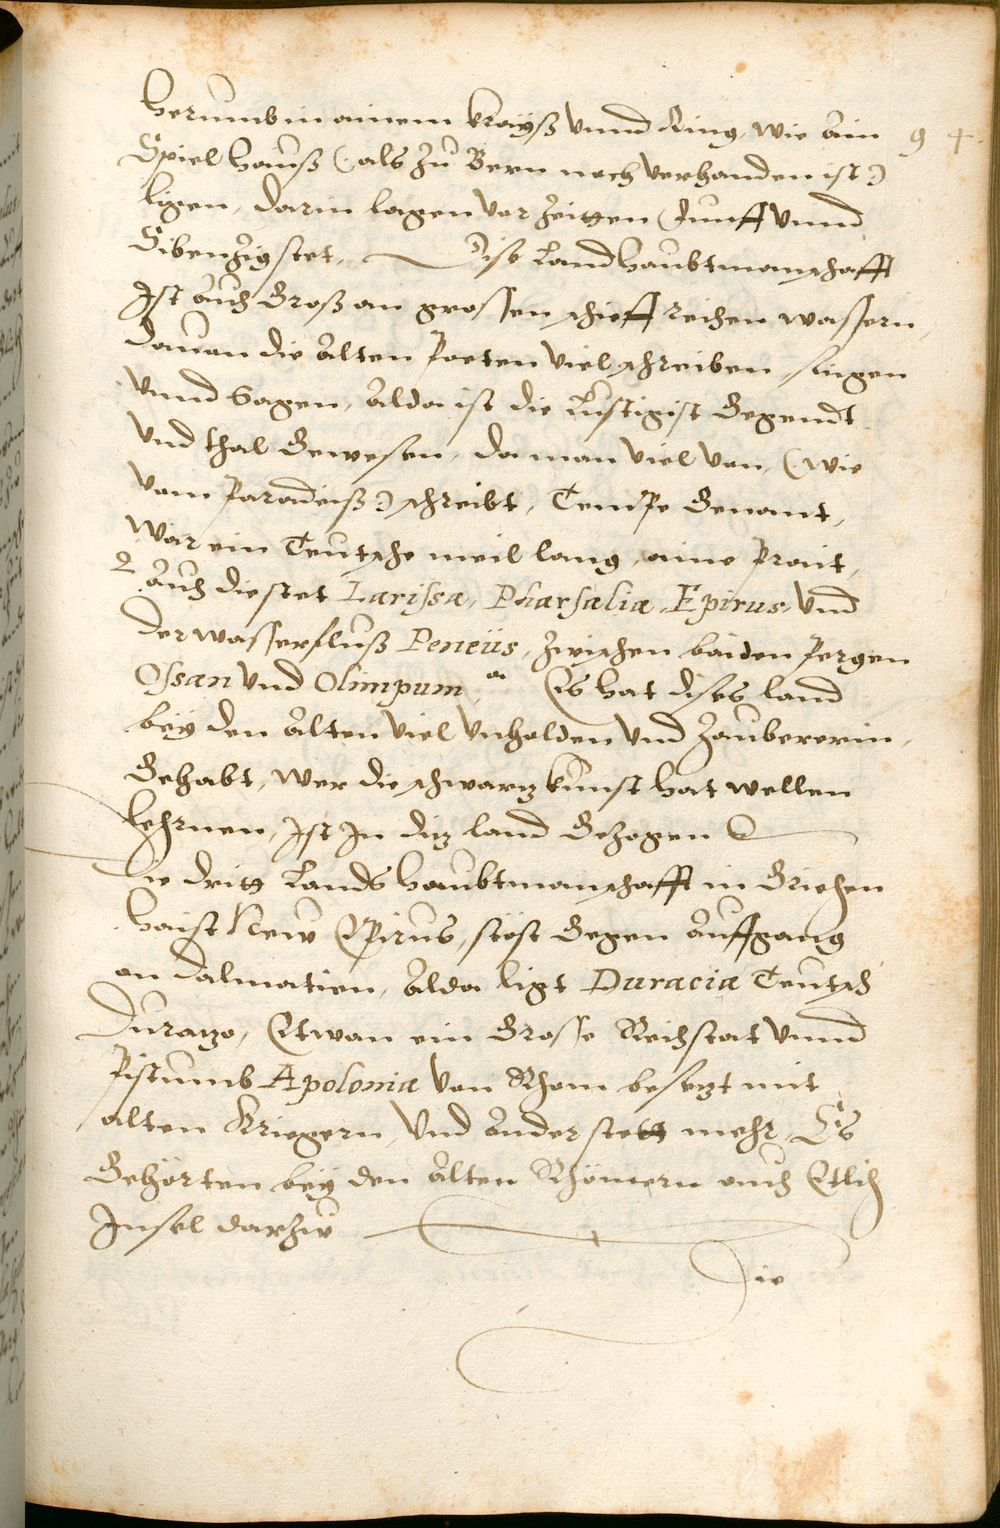 herumb in ainem krayß unnd Ring, wie ain 94
Spiel hauß (: als zu Bern noch verhanden ist :)
ligen, darin lagen vor Zeitten funff unnd
Sibenzig stet, Dise Landhaubtmanschafft
Ist auch Groß an grossen schieffreichen wassern,
davan die alten Poeten viel schreiben, singen
unnd Sagen, alda ist die Lustigist Gegendt
und thal Gewesen, da man viel von, (wie
vom Paradeiß) schreibt, Tempe Genant,
War ein Teutsche meil lang, aine prait,
auch die stet Larissa, Pharsalia, Epirus, und
der wasserfluß Peneüs, zwischen baiden pergen
Ossan und Olimpum, Es hat dises land
bey den alten viel unholden und Zaubererin,
Gehabt, Wer die schwartz kunst hat wellen
lehrnen, Ist In ditz land Gezogen
Die dritt Lands haubtmanschafft in Griechen
haist New Epirus, stöst Gegen auffgang
an Dalmatien, alda ligt Duracia Teutsch
Durazo, Etwan ein Grosse Reichstat unnd
Pistumb Apolonia von Rhom besetzt mit
alten Kriegern, und ander stett mehr, Es
Gehörten bey den alten Rhömern auch Etlich
Insel darzu
Die